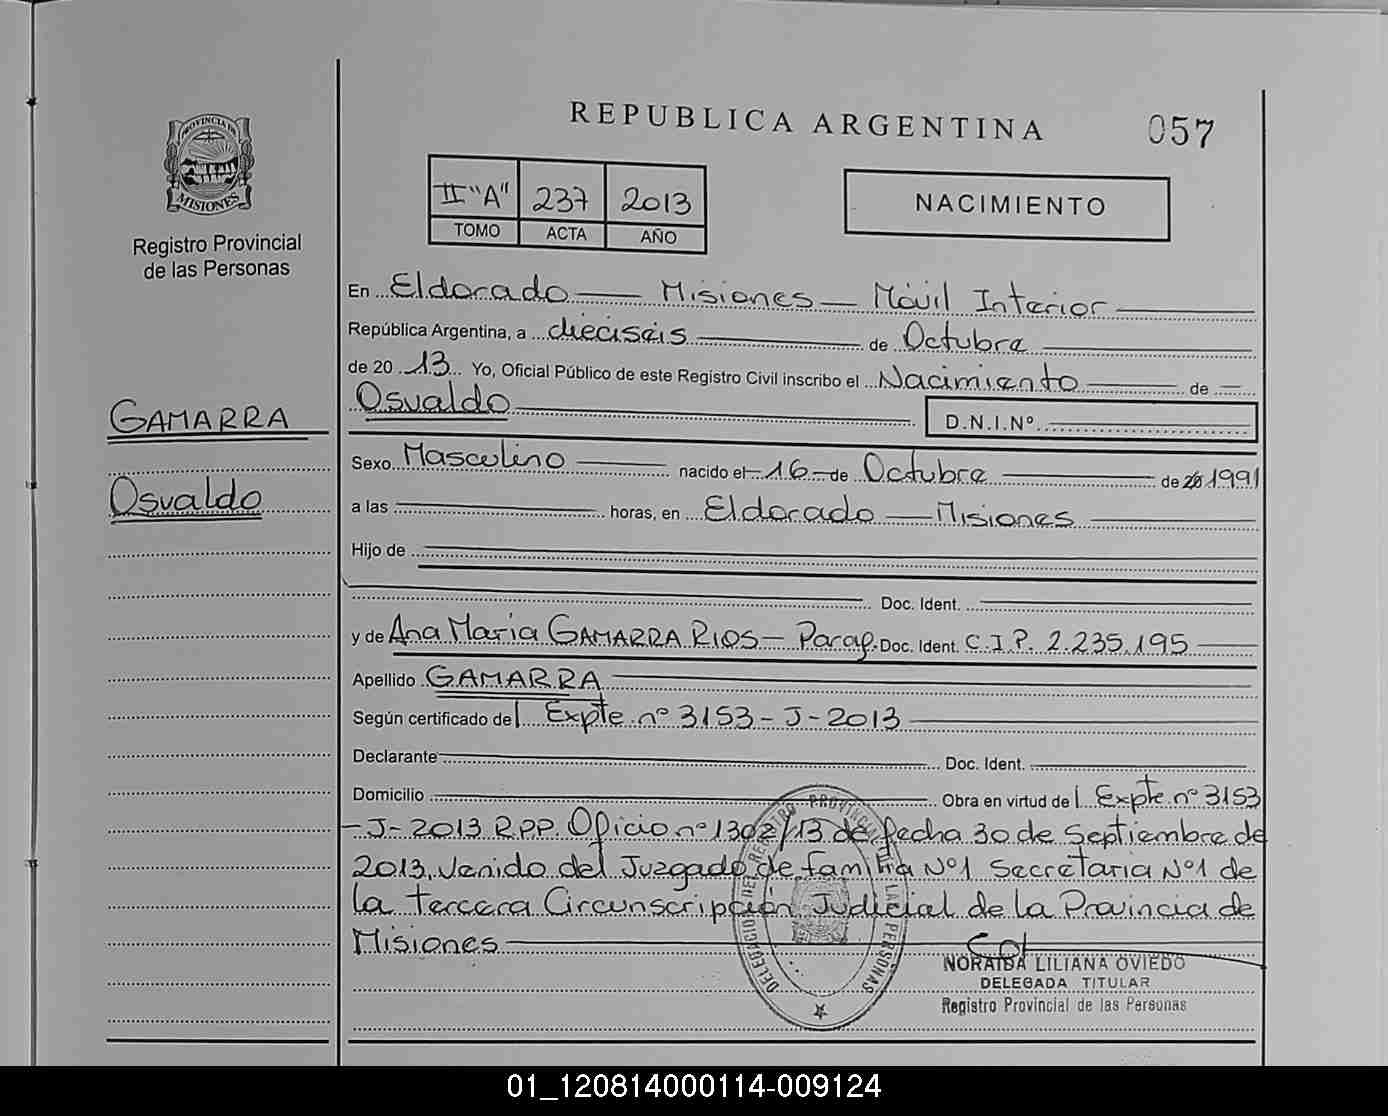 REPUBLICA ARGENTINA
057
PROVINCIA DE
MISIONES
Registro Provincial
de las Personas
II "A" 237 2013
TOMO ACTA AÑO
NACIMIENTO
En Eldorado — Misiones — Móvil Interior
República Argentina, a dieciseis de Octubre
de 2013 Yo, Oficial Público de este Registro Civil inscribo el Nacimiento de
GAMARRA
Osvaldo
Osvaldo
D.N.I.Nº
Sexo Masculino nacido el 16 de Octubre de 20 1991
a las horas, en Eldorado — Misiones
Hijo de
Doc. Ident.
y de Ana Maria GAMARRA RIOS — Parag. Doc. Ident. C.I.P. 2.235.195
Apellido GAMARRA
Según certificado de Expte. nº 3153 - J - 2013
Declarante Doc. Ident.
Domicilio Obra en virtud de Expte nº 3153
- J - 2013 R.P.P. Oficio nº 1302/13 de fecha 30 de Septiembre de
2013, Venido del Juzgado de familia Nº1 Secretaria Nº1 de
la tercera Circunscripción Judicial de la Provincia de
Misiones
DELEGACION DEL REGISTRO PROVINCIAL DE LAS PERSONAS
NORAIDA LILIANA OVIEDO
DELEGADA TITULAR
Registro Provincial de las Personas
01_120814000114-009124